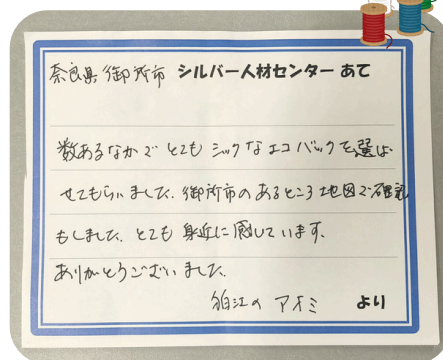 奈良県御所市 シルバー人材センター あて
数あるなかで とても シックな エコ バックを選ば
せてもらいました。御所市の あるところ 地図で確認
もしました。とても 身近に感じています。
ありがとうございました。
狛江の アオミ より